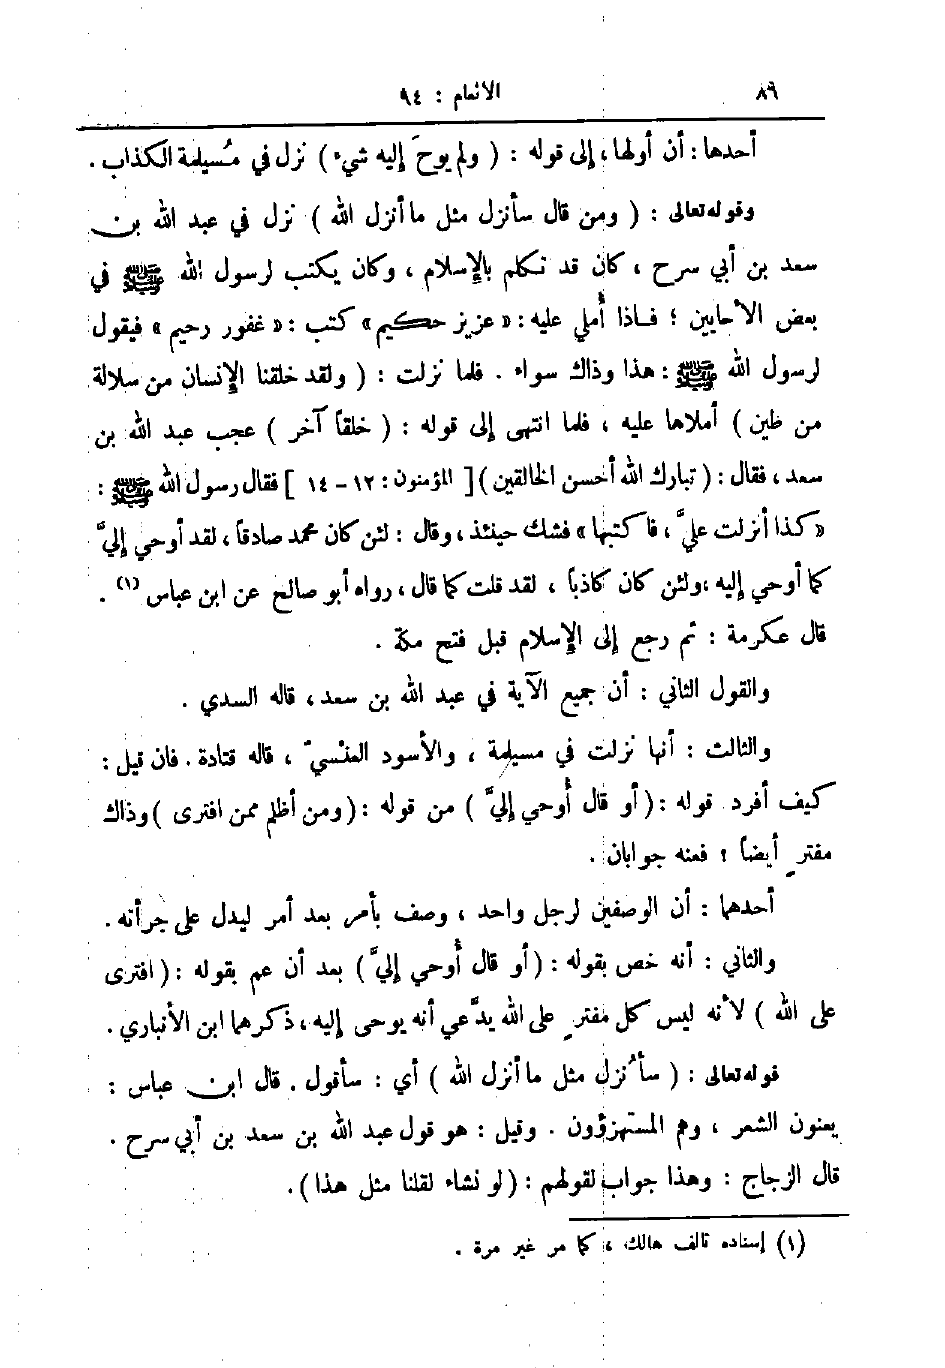 ٨٩
الأنعام : ٩٤
أحدها : أن أولها ، إلى قوله : ( ولم يوحَ إليه شيء ) نزل في مُسيلمة الكذاب .
وقوله تعالى : ( ومن قال سأنزل مثل ما أنزل الله ) نزل في عبد الله بن
سعد بن أبي سرح ، كان قد تكلم بالإسلام ، وكان يكتب لرسول الله ﷺ في
بعض الأحايين ؛ فاذا أُملي عليه : « عزيز حكيم » كتب : « غفور رحيم » فيقول
لرسول الله ﷺ : هذا وذاك سواء . فلما نزلت : ( ولقد خلقنا الإنسان من سلالة
من طين ) أملاها عليه ، فلما انتهى إلى قوله : ( خلقاً آخر ) عجب عبد الله بن
سعد ، فقال : ( تبارك الله أحسن الخالقين ) [ المؤمنون : ١٢ - ١٤ ] فقال رسول الله ﷺ :
« كذا أنزلت عليَّ ، فاكتبها » فشك حينئذ ، وقال : لئن كان محمد صادقاً ، لقد أوحي إليَّ
كما أوحي إليه ، ولئن كان كاذباً ، لقد قلت كما قال ، رواه أبو صالح عن ابن عباس (١) .
قال عكرمة : ثم رجع إلى الإسلام قبل فتح مكة .
والقول الثاني : أن جميع الآية في عبد الله بن سعد ، قاله السدي .
والثالث : أنها نزلت في مسيلمة ، والأسود العنْسيّ ، قاله قتادة . فان قيل :
كيف أفرد قوله : ( أو قال أُوحي إليَّ ) من قوله : ( ومن أظلم ممن افترى ) وذاك
مفترٍ أيضاً ؟ فعنه جوابان .
أحدهما : أن الوصفين لرجل واحد ، وصف بأمر بعد أمر ليدل على جرأته .
والثاني : أنه خص بقوله : ( أو قال أُوحي إليَّ ) بعد أن عم بقوله : ( افترى
على الله ) لأنه ليس كل مفترٍ على الله يدَّعي أنه يوحى إليه ، ذكرهما ابن الأنباري .
قوله تعالى : ( سأُنزل مثل ما أنزل الله ) أي : سأقول . قال ابن عباس :
يعنون الشعر ، وهم المستهزؤون . وقيل : هو قول عبد الله بن سعد بن أبي سرح .
قال الزجاج : وهذا جواب لقولهم : ( لو نشاء لقلنا مثل هذا ) .
(١) إسناده تالف هالك ، كما مر غير مرة .